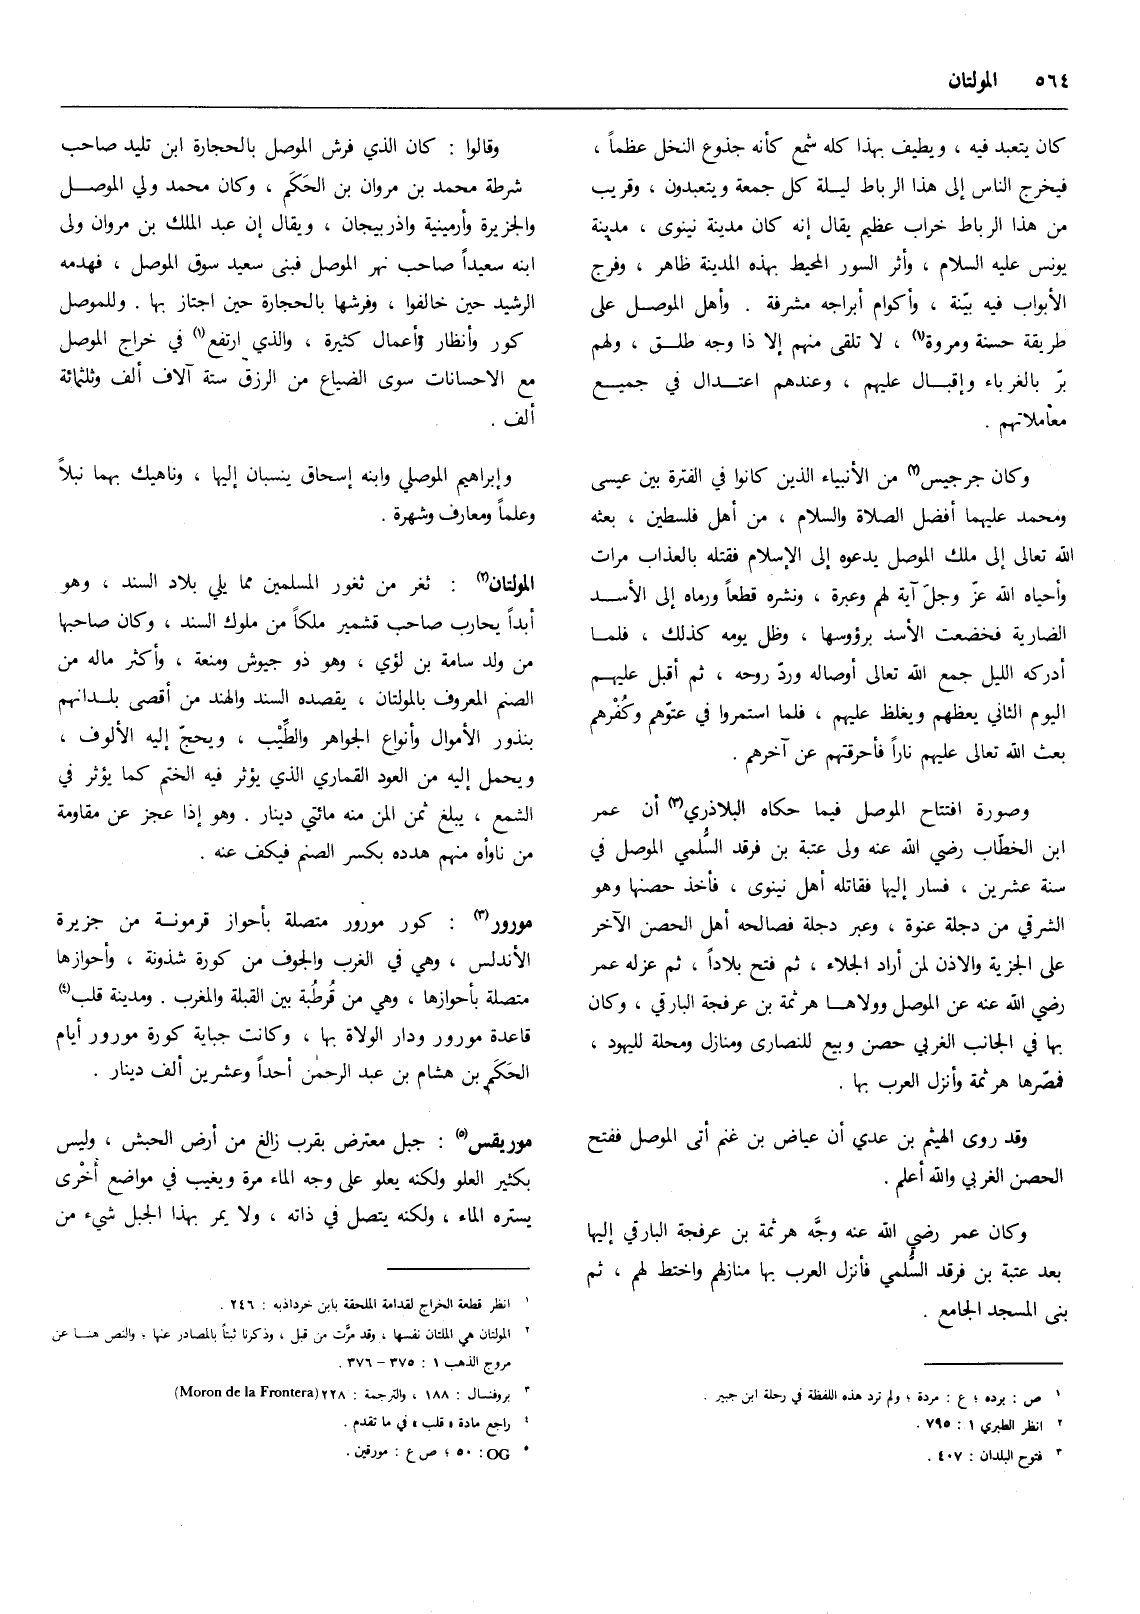 ٥٦٤ المولتان
كان يتعبد فيه ، ويطيف بهذا كله شمع كأنه جذوع النخل عظماً ،
فيخرج الناس إلى هذا الرباط ليلة كل جمعة ويتعبدون ، وقريب
من هذا الرباط خراب عظيم يقال إنه كان مدينة نينوى ، مدينة
يونس عليه السلام ، وأثر السور المحيط بهذه المدينة ظاهر ، وفرج
الأبواب فيه بيّنة ، وأكوام أبراجه مشرفة . وأهل الموصل على
طريقة حسنة ومروة(١) ، لا تلقى منهم إلا ذا وجه طلق ، ولهم
برّ بالغرباء وإقبال عليهم ، وعندهم اعتدال في جميع
معاملاتهم .
وكان جرجيس(٢) من الأنبياء الذين كانوا في الفترة بين عيسى
ومحمد عليهما أفضل الصلاة والسلام ، من أهل فلسطين ، بعثه
الله تعالى إلى ملك الموصل يدعوه إلى الإسلام فقتله بالعذاب مرات
وأحياه الله عزّ وجلّ آية لهم وعبرة ، ونشره قطعاً ورماه إلى الأسد
الضارية فخضعت الأسد برؤوسها ، وظل يومه كذلك ، فلما
أدركه الليل جمع الله تعالى أوصاله وردّ روحه ، ثم أقبل عليهم
اليوم الثاني يعظهم ويغلظ عليهم ، فلما استمروا في عتوّهم وكُفْرهم
بعث الله تعالى عليهم ناراً فأحرقتهم عن آخرهم .
وصورة افتتاح الموصل فيما حكاه البلاذري(٣) أن عمر
ابن الخطّاب رضي الله عنه ولى عتبة بن فرقد السُّلمي الموصل في
سنة عشرين ، فسار إليها فقاتله أهل نينوى ، فأخذ حصنها وهو
الشرقي من دجلة عنوة ، وعبر دجلة فصالحه أهل الحصن الآخر
على الجزية والاذن لمن أراد الجلاء ، ثم فتح بلاداً ، ثم عزله عمر
رضي الله عنه عن الموصل وولاها هرثمة بن عرفجة البارقي ، وكان
بها في الجانب الغربي حصن وبيع للنصارى ومنازل ومحلة لليهود ،
فمصّرها هرثمة وأنزل العرب بها .
وقد روى الهيثم بن عدي أن عياض بن غنم أتى الموصل ففتح
الحصن الغربي والله أعلم .
وكان عمر رضي الله عنه وجَّه هرثمة بن عرفجة البارقي إليها
بعد عتبة بن فرقد السُّلمي فأنزل العرب بها منازلهم واختط لهم ، ثم
بنى المسجد الجامع .
١ ص : برده ؛ ع : مردة ؛ ولم ترد هذه اللفظة في رحلة ابن جبير .
٢ انظر الطبري ١ : ٧٩٥ .
٣ فتوح البلدان : ٤٠٧ .
وقالوا : كان الذي فرش الموصل بالحجارة ابن تليد صاحب
شرطة محمد بن مروان بن الحَكَم ، وكان محمد ولي الموصل
والجزيرة وأرمينية واذربيجان ، ويقال إن عبد الملك بن مروان ولى
ابنه سعيداً صاحب نهر الموصل فبنى سعيد سوق الموصل ، فهدمه
الرشيد حين خالفوا ، وفرشها بالحجارة حين اجتاز بها . وللموصل
كور وأنظار وأعمال كثيرة ، والذي ارتفع(١) في خراج الموصل
مع الاحسانات سوى الضياع من الرزق ستة آلاف ألف وثلثمائة
ألف .
وإبراهيم الموصلي وابنه إسحاق ينسبان إليها ، وناهيك بهما نبلاً
وعلماً ومعارف وشهرة .
المولتان(٢) : ثغر من ثغور المسلمين مما يلي بلاد السند ، وهو
أبداً يحارب صاحب قشمير ملكاً من ملوك السند ، وكان صاحبها
من ولد سامة بن لؤي ، وهو ذو جيوش ومنعة ، وأكثر ماله من
الصنم المعروف بالمولتان ، يقصده السند والهند من أقصى بلدانهم
بنذور الأموال وأنواع الجواهر والطِّيْب ، ويحجّ إليه الألوف ،
ويحمل إليه من العود القماري الذي يؤثر فيه الختم كما يؤثر في
الشمع ، يبلغ ثمن المن منه مائتي دينار . وهو إذا عجز عن مقاومة
من ناوأه منهم هدده بكسر الصنم فيكف عنه .
مورور(٣) : كور مورور متصلة بأحواز قرمونة من جزيرة
الأندلس ، وهي في الغرب والجوف من كورة شذونة ، وأحوازها
متصلة بأحوازها ، وهي من قُرطُبة بين القبلة والمغرب . ومدينة قلب(٤)
قاعدة مورور ودار الولاة بها ، وكانت جباية كورة مورور أيام
الحَكَم بن هشام بن عبد الرحمٰن أحداً وعشرين ألف دينار .
موريقس(٥) : جبل معترض بقرب زالغ من أرض الحبش ، وليس
بكثير العلو ولكنه يعلو على وجه الماء مرة ويغيب في مواضع أُخْرى
يستره الماء ، ولكنه يتصل في ذاته ، ولا يمر بهذا الجبل شيء من
١ انظر قطعة الخراج لقدامة الملحقة بابن خرداذبه : ٢٤٦ .
٢ المولتان هي الملتان نفسها ، وقد مرَّت من قبل ، وذكرنا ثبتاً بالمصادر عنها ؛ والنص هنا عن
مروج الذهب ١ : ٣٧٥ – ٣٧٦ .
٣ بروفنسال : ١٨٨ ، والترجمة : ٢٢٨ (Moron de la Frontera)
٤ راجع مادة « قلب » في ما تقدم .
٥ OG : ٥٠ ؛ ص ع : مورقين .